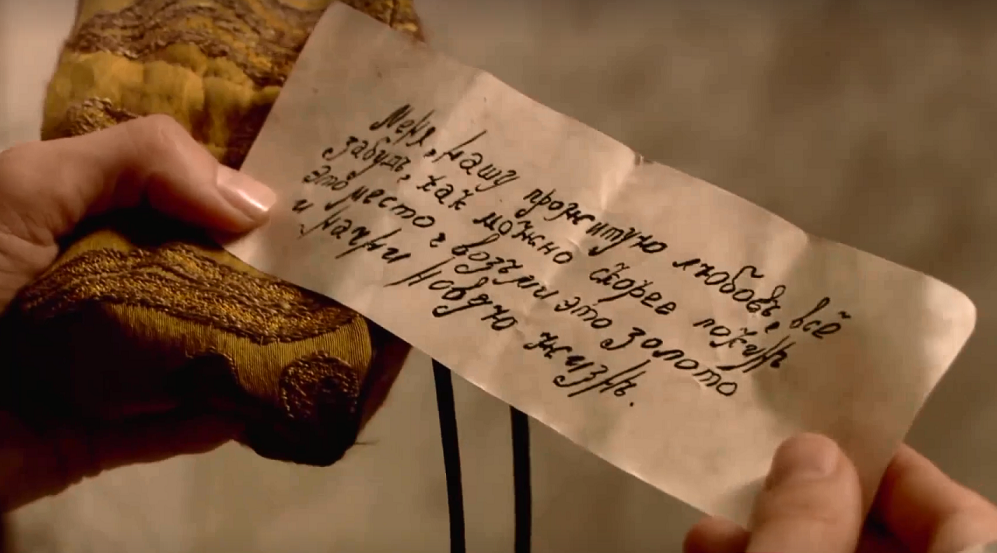 Меня, нашу прожитую любовь, всё
забудь, как можно скорее покинь
это место, возьми это золото
и начни новую жизнь.